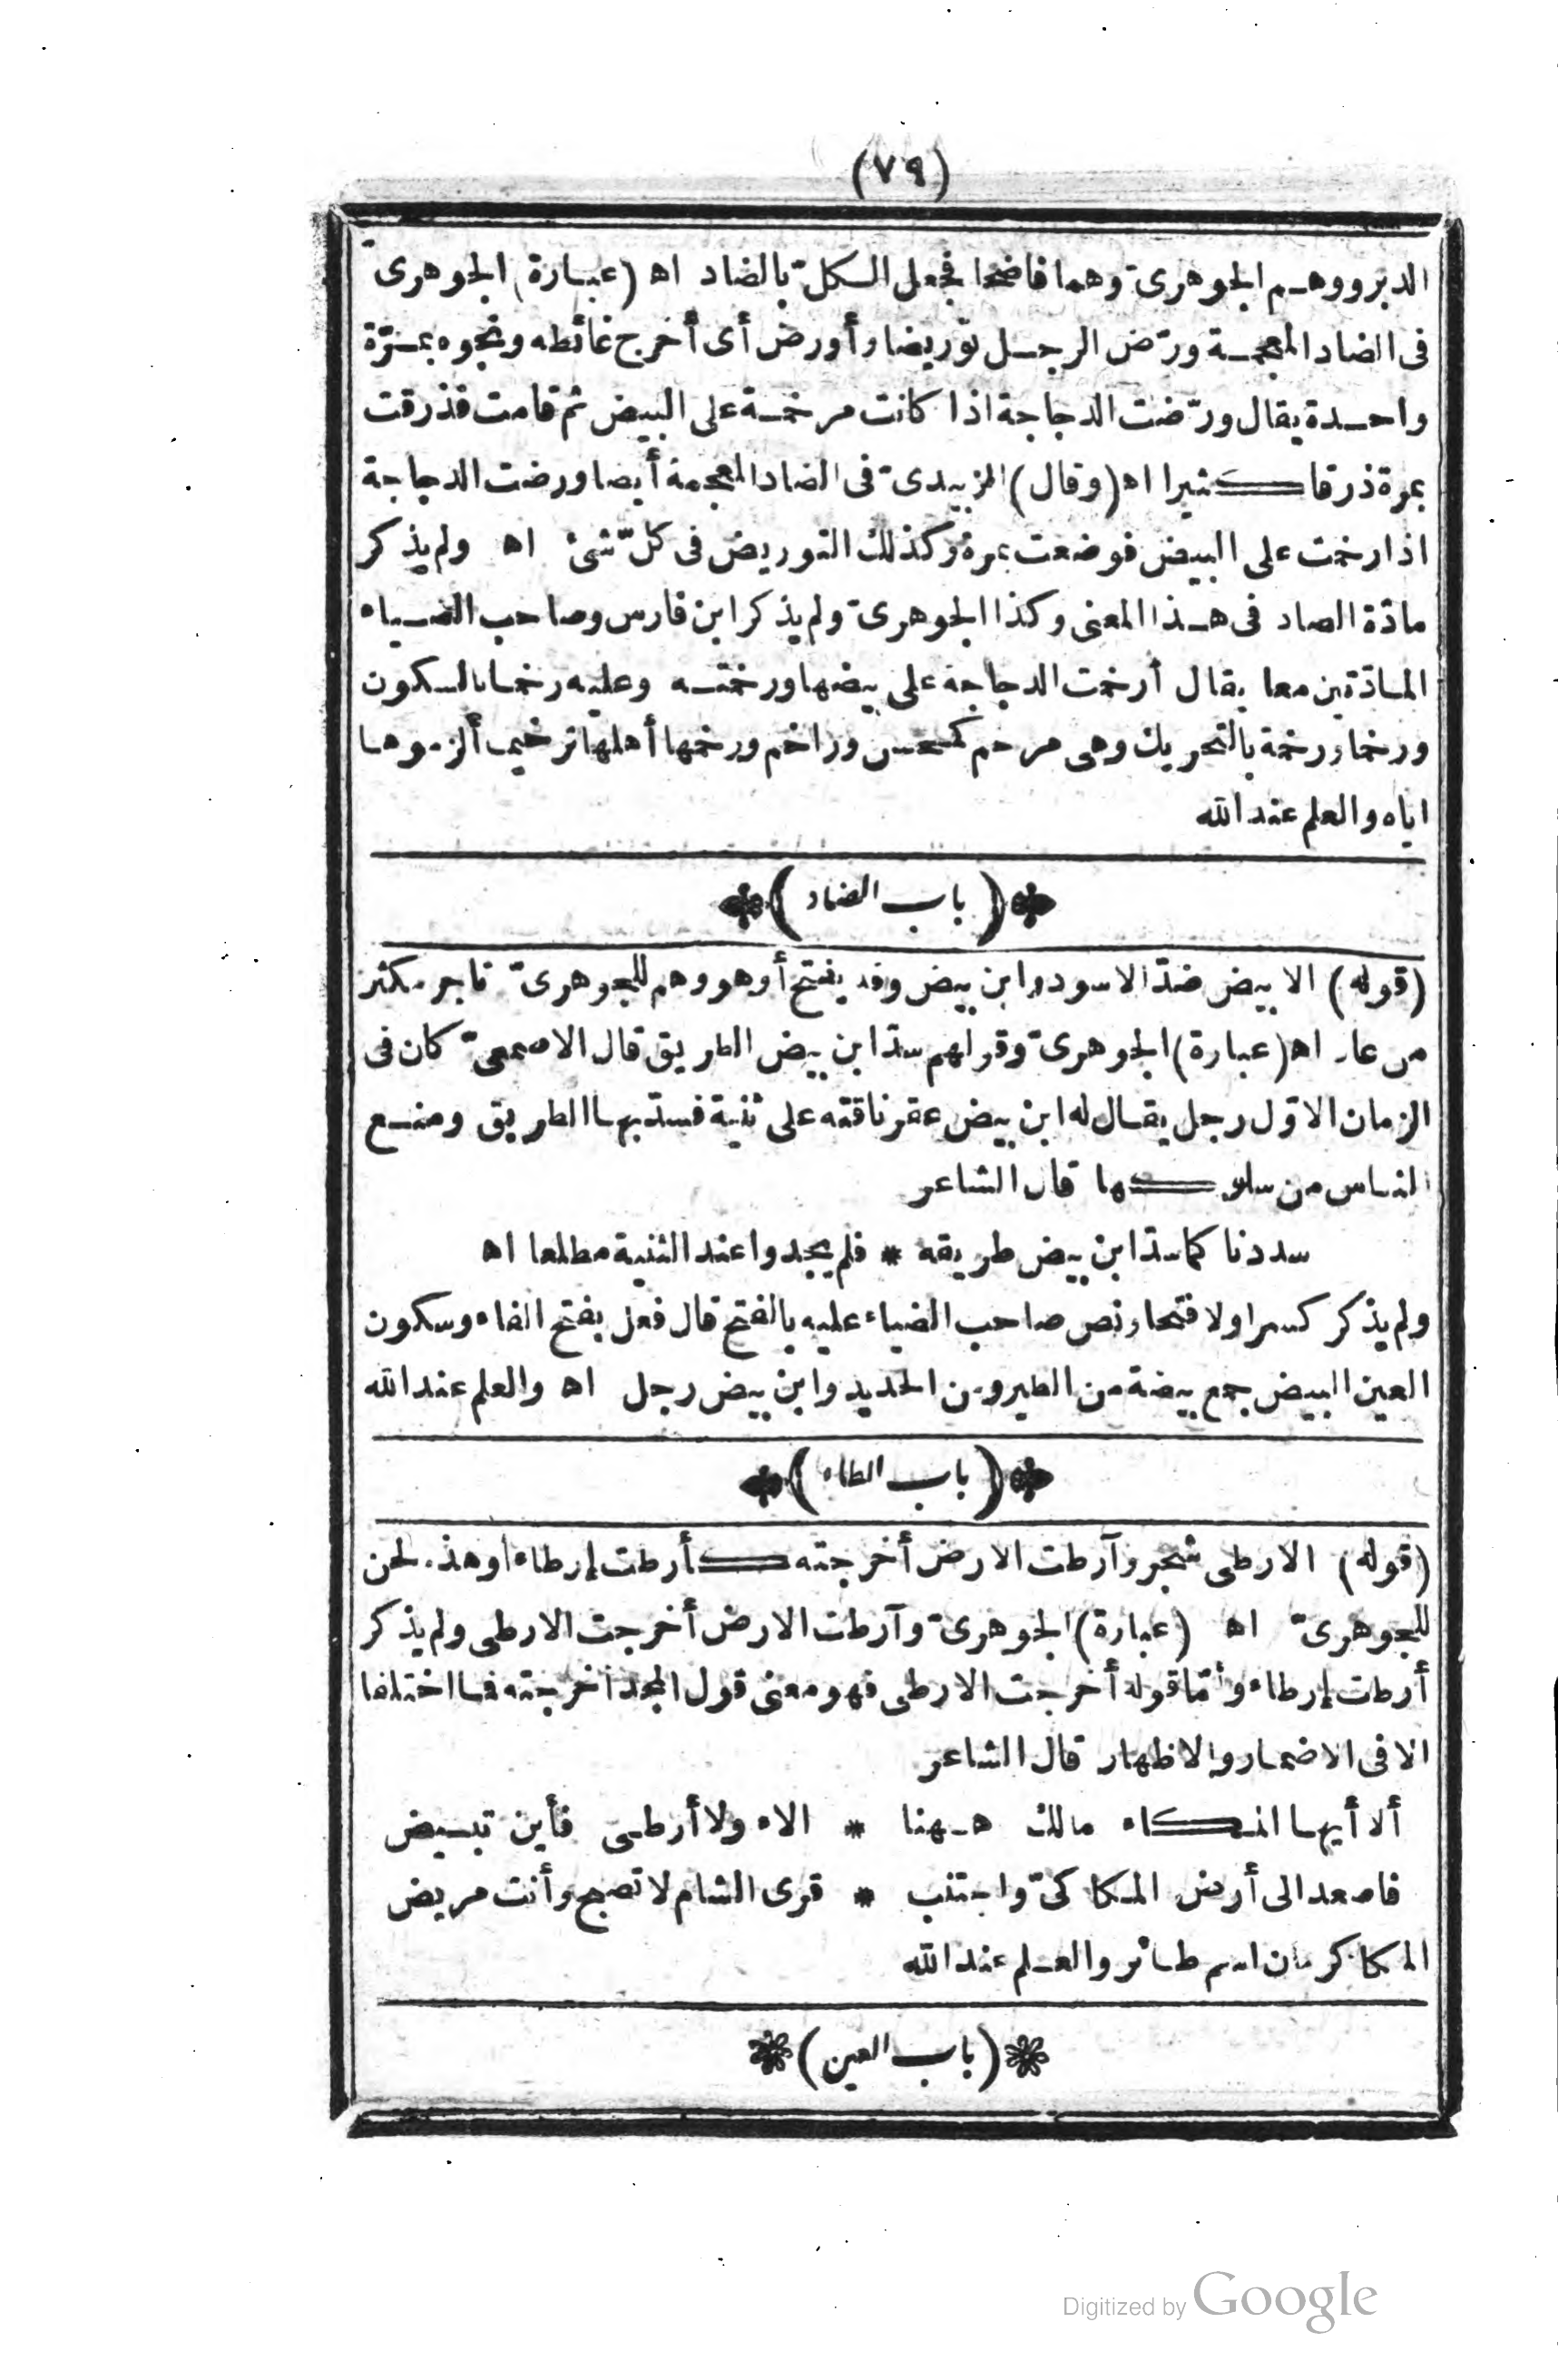 (٧٩)
الدبر ووهم الجوهرىّ وهما فاضحا فجعل الكلّ بالضاد اه (عبارة) الجوهرىّ
فى الضاد المعجمة ورّض الرجل توريضا وأورض أى أخرج غائطه ونجوه بمرّة
واحدة يقال ورّضت الدجاجة اذا كانت مرخمة على البيض ثم قامت فذرقت
بمرة ذرقا كثيرا اه (وقال) الزبيدىّ فى الضاد المعجمة أيضا ورضت الدجاجة
اذا رخمت على البيض فوضعت بمرة وكذلك التوريض فى كلّ شئ اه ولم يذكر
مادّة الصاد فى هذا المعنى وكذا الجوهرىّ ولم يذكر ابن فارس وصاحب الضياء
المادّتين معا يقال أرخمت الدجاجة على بيضها ورخمته وعليه رخما بالسكون
ورخما ورخمة بالتحريك وهى مرخم كمحسن وراخم ورخمها أهلها ترخيما ألزموها
اياه والعلم عند الله
(باب الضاد)
(قوله) الابيض ضدّ الاسود وابن بيض وقد يفتح أو هو وهم للجوهرىّ تاجر مكثر
من عاد اه (عبارة) الجوهرىّ وقولهم سدّ ابن بيض الطريق قال الاصمعىّ كان فى
الزمان الاوّل رجل يقال له ابن بيض عقر ناقته على ثنية فسدّ بها الطريق ومنع
الناس من سلوكها قال الشاعر
سددنا كما سدّ ابن بيض طريقه * فلم يجدوا عند الثنية مطلعا اه
ولم يذكر كسرا ولا فتحا ونص صاحب الضياء عليه بالفتح قال فعل بفتح الفاء وسكون
العين البيض جمع بيضة من الطير ومن الحديد وابن بيض رجل اه والعلم عند الله
(باب الطاء)
(قوله) الارطى شجر وآرطت الارض أخرجته كأرطت إرطاء أو هذه لحن
للجوهرىّ اه (عبارة) الجوهرىّ وآرطت الارض أخرجت الارطى ولم يذكر
أرطت إرطاء وأمّا قوله أخرجت الارطى فهو معنى قول المجد أخرجته فما اختلفا
الا فى الاضمار والاظهار قال الشاعر
ألا أيها المكاء مالك ههنا * الاء ولا أرطى فأين تبيض
فاصعد الى أرض المكاكىّ واجتنب * قرى الشام لا تصبح وأنت مريض
المكا كرمان اسم طائر والعلم عند الله
(باب العين)
Digitized by Google